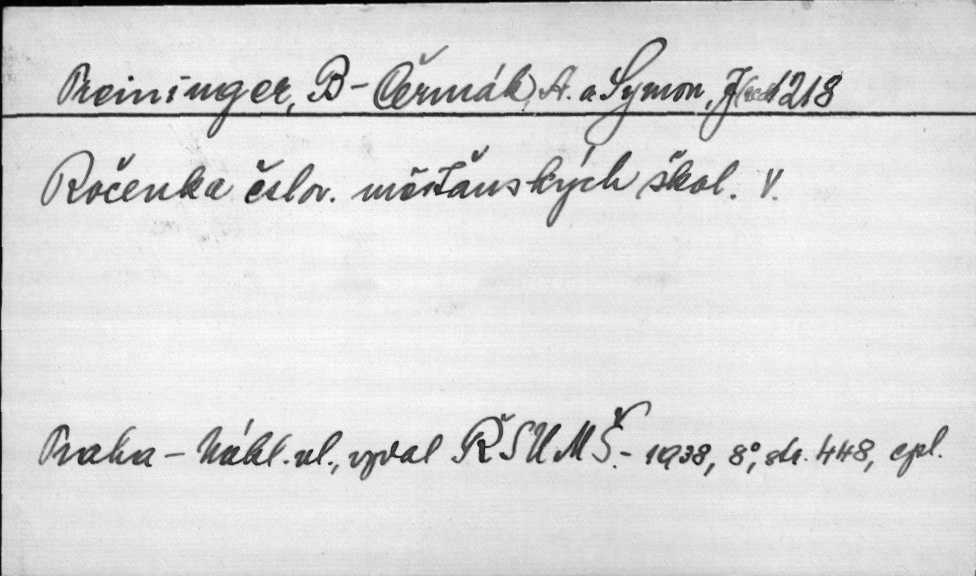 Preininger, B - Čermák, A. a Symon, J. (red) 1218
Ročenka čslov. měšťanských škol. V.
Praha - Nákl. vl., vydal ŘSUMŠ. - 1938, 8°, str. 448, cpl.